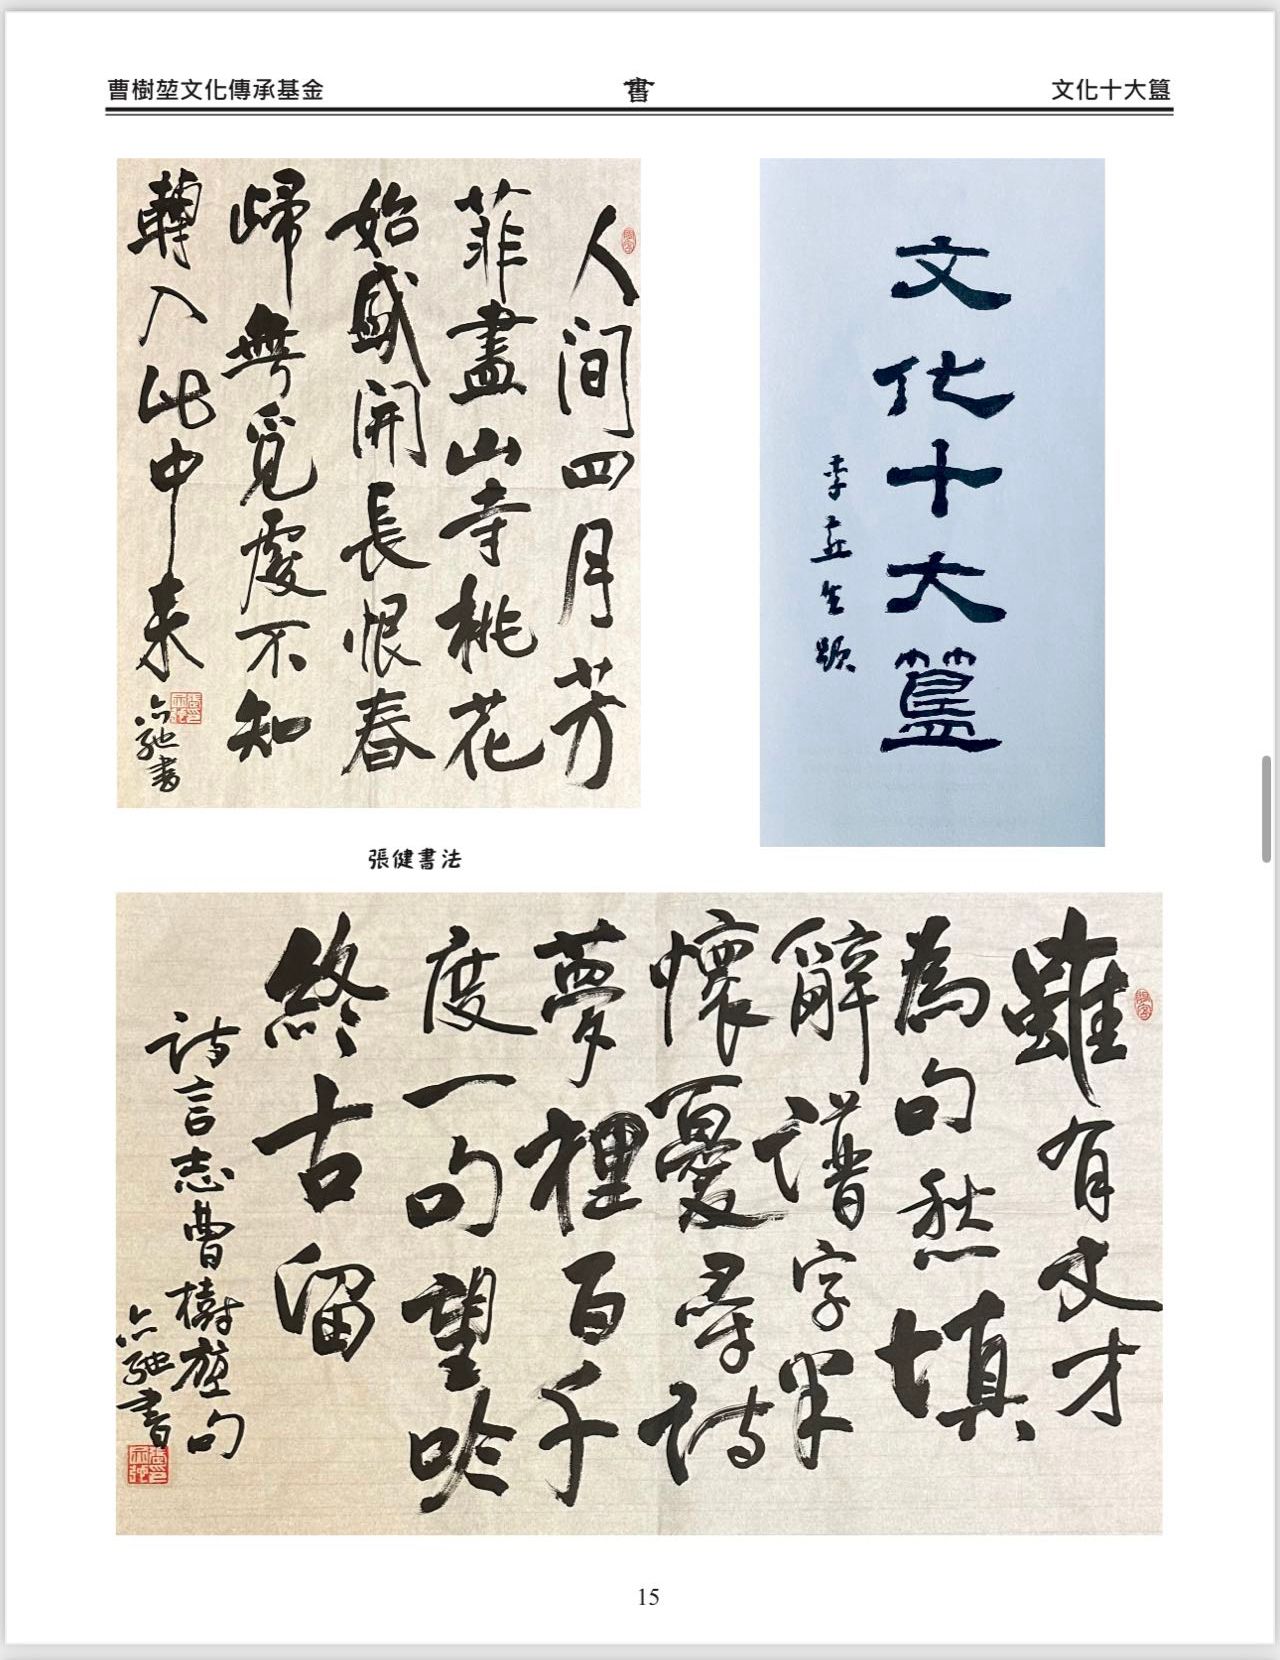 曹樹堃文化傳承基金
書
文化十大簋
人间四月芳
菲盡山寺桃花
始盛開長恨春
歸無覓處不知
轉入此中来
六馳书
文化十大簋
李直生題
張健書法
雖有文才
為句愁填
辭譜字半
懷憂尋詩
夢裡百千
度一句望吟
終古留
诗言志曹樹堃句
六馳書
15